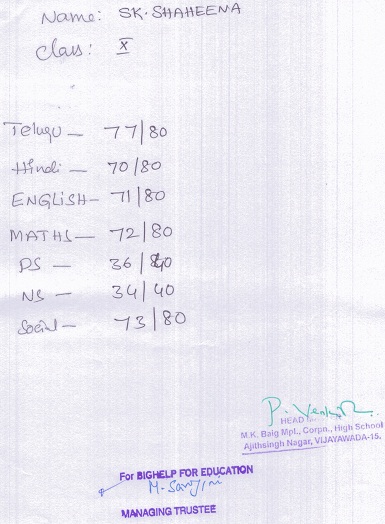 Name: SK. SHAHEENA
Class: X
Telugu — 77/80
Hindi — 70/80
ENGLISH — 71/80
MATHS — 72/80
PS — 36/40
NS — 34/40
Social — 73/80
P. Venkat
HEAD
M.K. Baig Mpl., Corpn., High School
Ajithsingh Nagar, VIJAYAWADA-15.
For BIGHELP FOR EDUCATION
M. Sarojini
MANAGING TRUSTEE